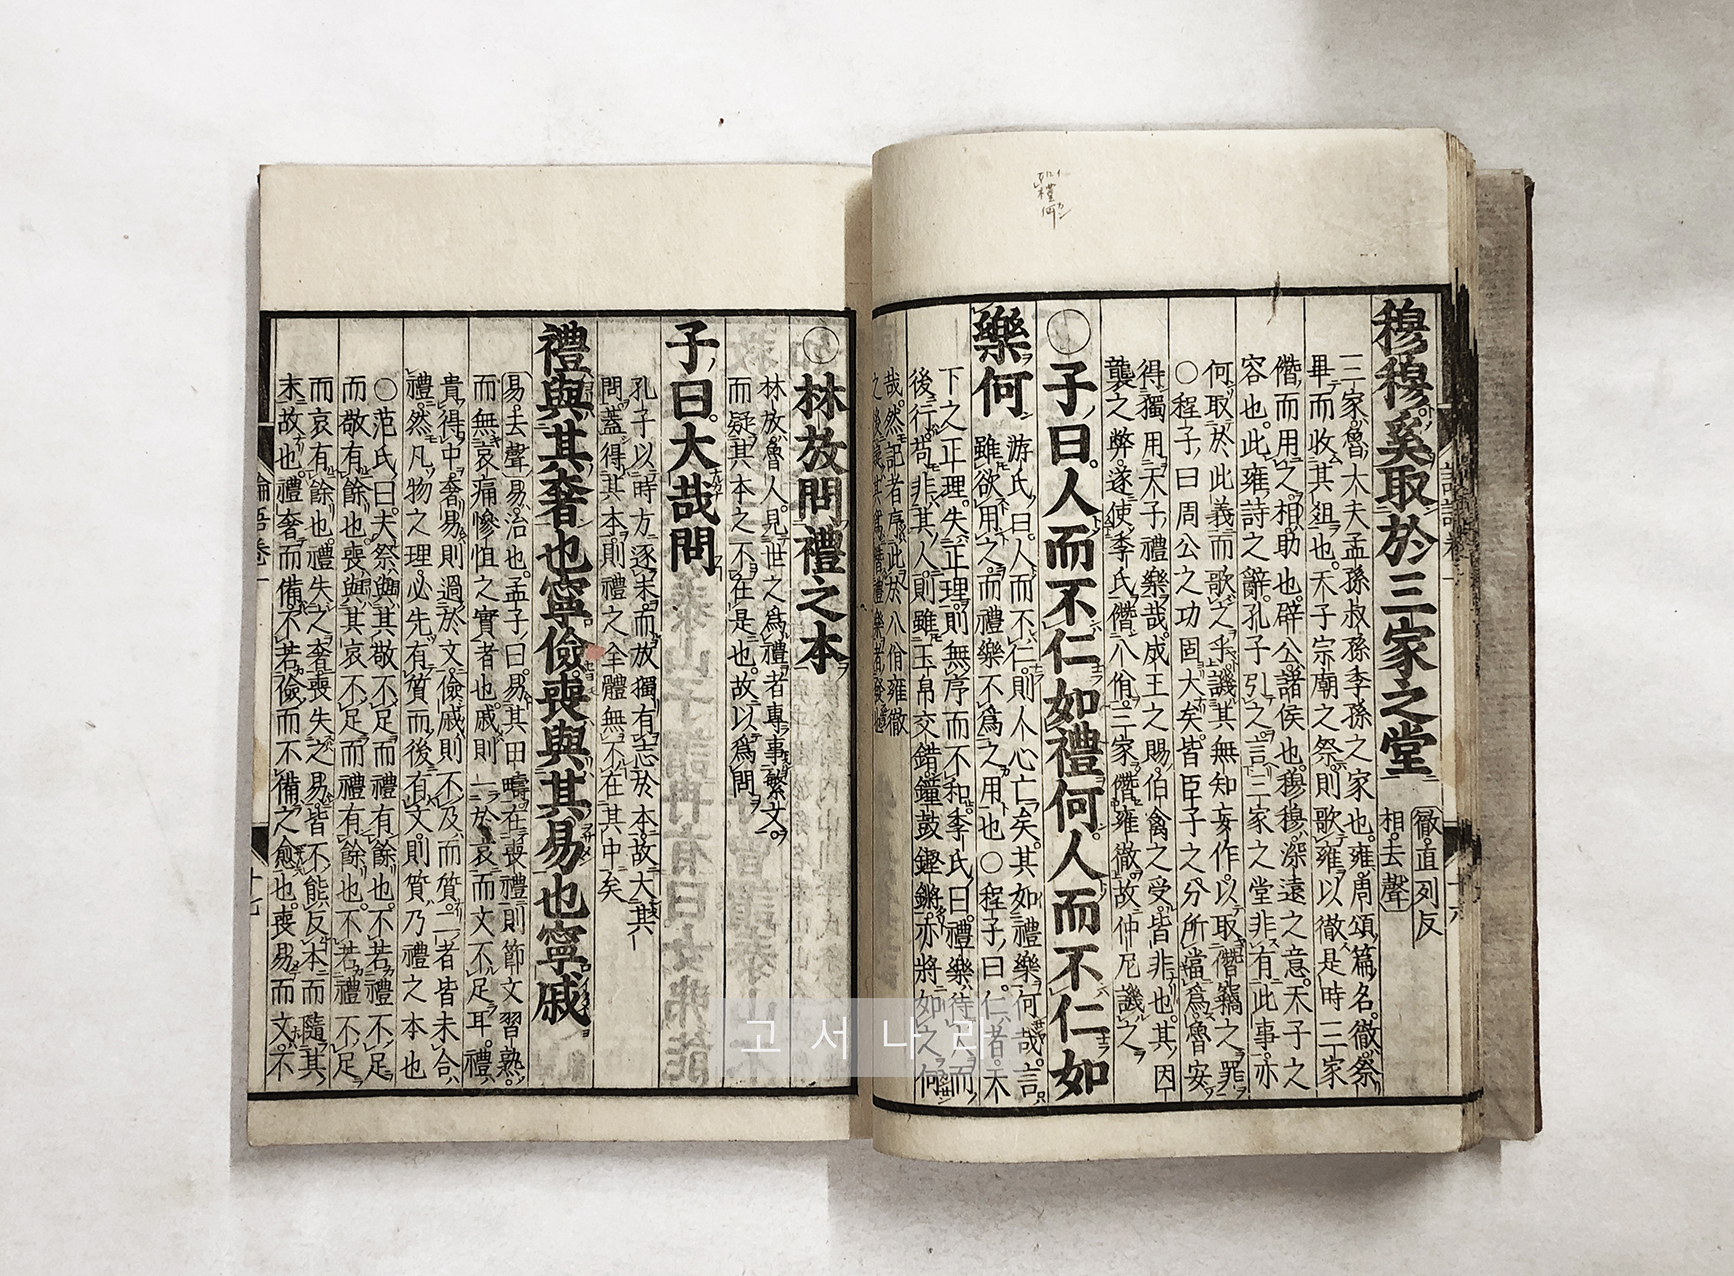 穆穆奚取於三家之堂
徹直列反
相去聲
三家魯大夫孟孫叔孫季孫之家也雍周頌篇名徹祭
畢而收其俎也天子宗廟之祭則歌雍以徹是時三家
僭而用之相助也辟公諸侯也穆穆深遠之意天子之
容也此雍詩之辭孔子引之言三家之堂非有此事亦
何取於此義而歌之乎譏其無知妄作以取僭竊之罪
○程子曰周公之功固大矣皆臣子之分所當爲魯安
得獨用天子禮樂哉成王之賜伯禽之受皆非也其因
襲之弊遂使季氏僭八佾三家僭雍徹故仲尼譏之
○子曰人而不仁如禮何人而不仁如
樂何
游氏曰人而不仁則人心亡矣其如禮樂何哉言
雖欲用之而禮樂不爲之用也○程子曰仁者天
下之正理失正理則無序而不和李氏曰禮樂待人而
後行苟非其人則雖玉帛交錯鐘鼓鏗鏘亦將如之何
哉然記者序此於八佾雍徹
之後
○林放問禮之本
林放魯人見世之爲禮者專事繁文
而疑其本之不在是也故以爲問
子曰大哉問
孔子以時方逐末而放獨有志於本故大其
問蓋得其本則禮之全體無不在其中矣
禮與其奢也寧儉喪與其易也寧戚
易去聲易治也孟子曰易其田疇在喪禮則節文習熟
而無哀痛慘怛之實者也戚則一於哀而文不足耳禮
貴得中奢易則過於文儉戚則不及而質二者皆未合
禮然凡物之理必先有質而後有文則質乃禮之本也
○范氏曰夫祭與其敬不足而禮有餘也不若禮不足
而敬有餘也喪與其哀不足而禮有餘也不若禮不足
而哀有餘也禮失之奢喪失之易皆不能反本而隨其
末故也禮奢而備不若儉而不備之愈也喪易而文不
고서나라